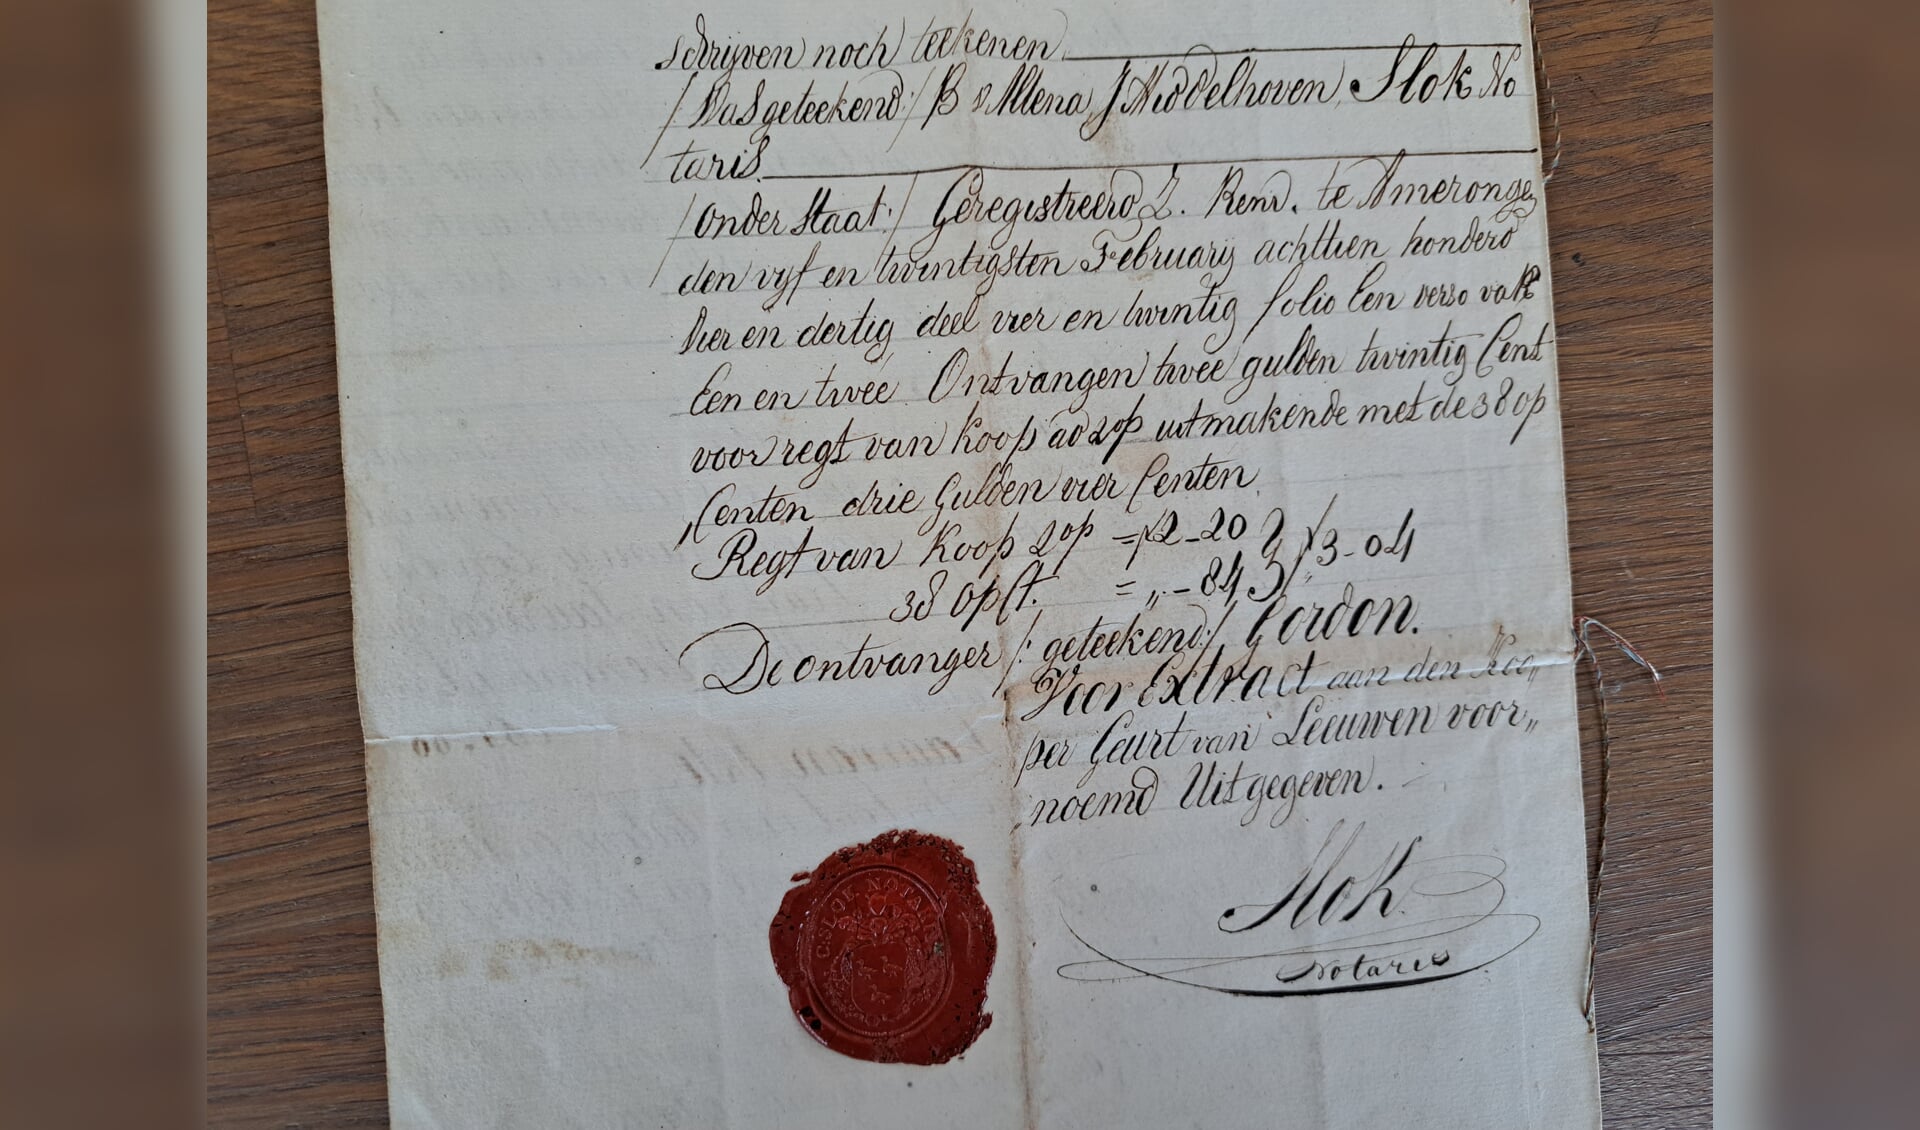 schrijven noch teekenen
/Was geteekend:/ B v Altena, J Middelhoven, Slok No
taris.
/onder Staat:/ Geregistreerd Z. Renv. te Amerongen
den vijf en twintigsten Februarij achttien honderd
vier en dertig deel vier en twintig folio Een verso vak
Een en twee Ontvangen twee gulden twintig Cent
voor regt van koop ad 2 op uitmakende met de 38 op
Centen drie Gulden vier Centen
Regt van Koop 2 op = f 2-20 } f 3-04
38 op Ct. = „ - 84
De ontvanger /: geteekend:/ Gordon.
Voor Extract aan den Koo„
per Geurt van Leeuwen voor„
noemd Uitgegeven.
Slok
Notaris
C: SLOK NOTARIS